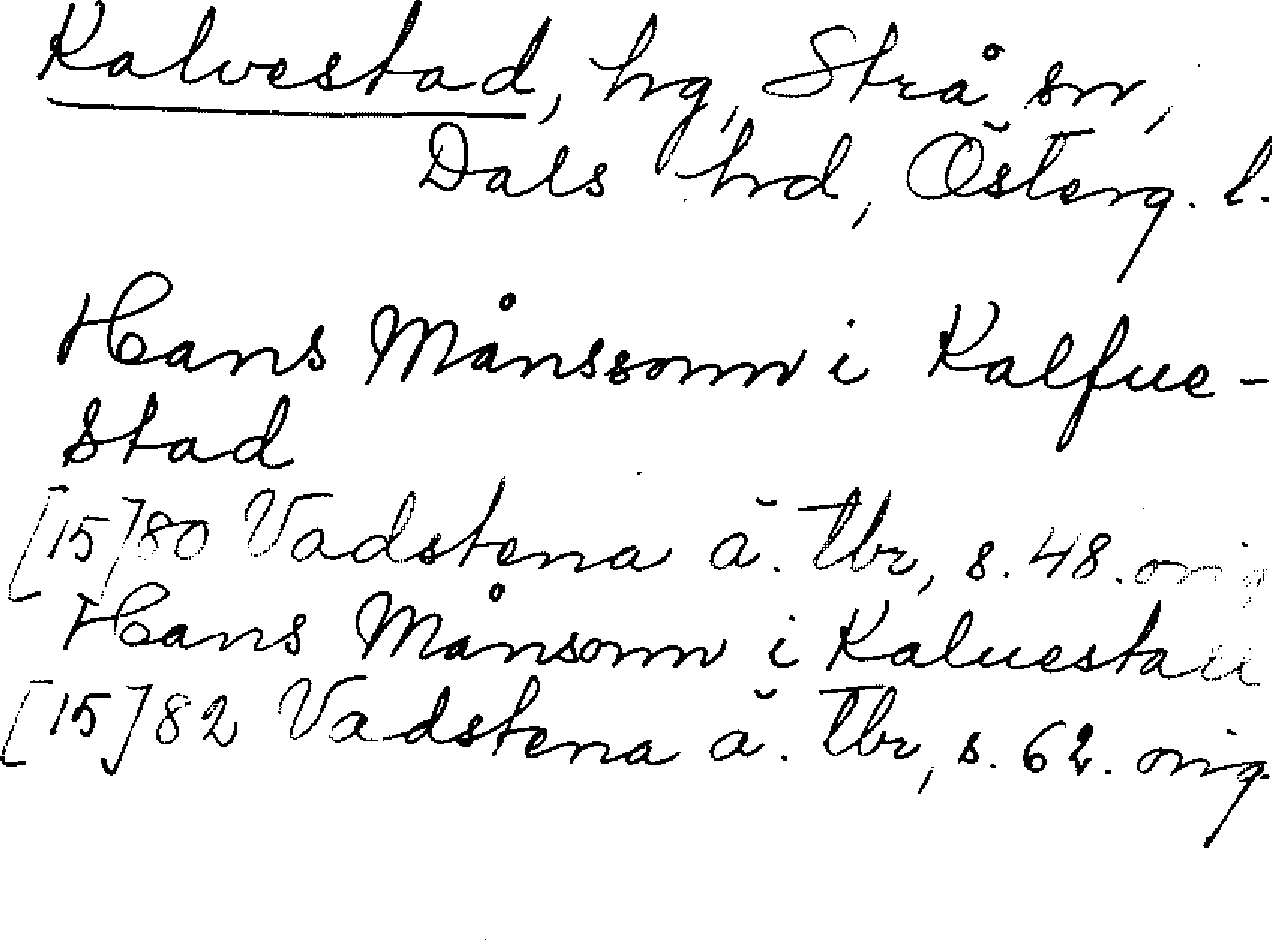 Kalvestad, hg, Strå sn,
Dals hrd, Österg. l.
Hans Månssonn i Kalfue-
stad
[15]80 Vadstena ä. tbr, s. 48. orig
Hans Månsonn i Kaluestad
[15]82 Vadstena ä. tbr, s. 62. orig